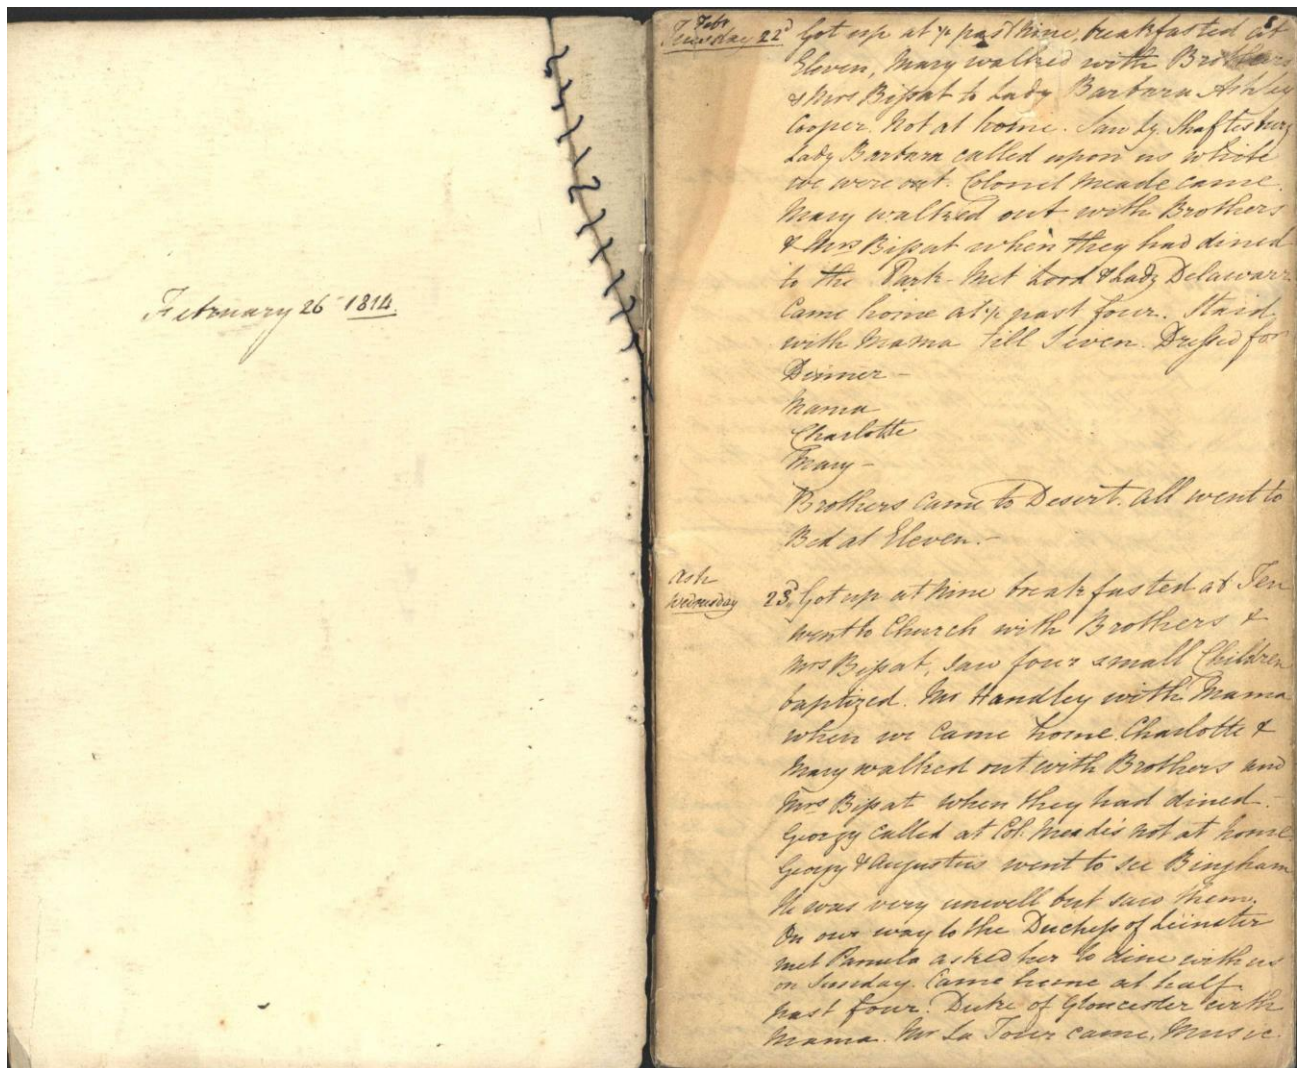 February 26 1814.
Febr
Tuesday 22d Got up at ½ past Nine, breakfasted at
Eleven, Mary walked with Brothers
& Mrs Bipat to Lady Barbara Ashley
Cooper. Not at home. Saw Ly. Shaftesbury
Lady Barbara called upon us while
we were out. Colonel Meade came.
Mary walked out with Brothers
& Mrs Bipat when they had dined
to the Park - Met Lord & Lady Delawarr
Came home at ½ past four. Staid
with Mama till Seven. Dressed for
Dinner -
Mama
Charlotte
Mary -
Brothers came to Desert. All went to
Bed at Eleven. -
Ash
Wednesday 23d Got up at Nine breakfasted at Ten
went to Church with Brothers &
Mrs Bipat, saw four small Children
baptized. Mr Handley with Mama
when we came home. Charlotte &
Mary walked out with Brothers and
Mrs Bipat when they had dined. -
Georgy called at Col. Meade's not at home
Georgy & Augustus went to see Bingham
He was very unwell but saw them.
On our way to the Duchess of Leinster
met Pamela asked her to dine with us
on Sunday. Came home at half
past four. Duke of Gloucester with
Mama. Mr La Tour came, Music.